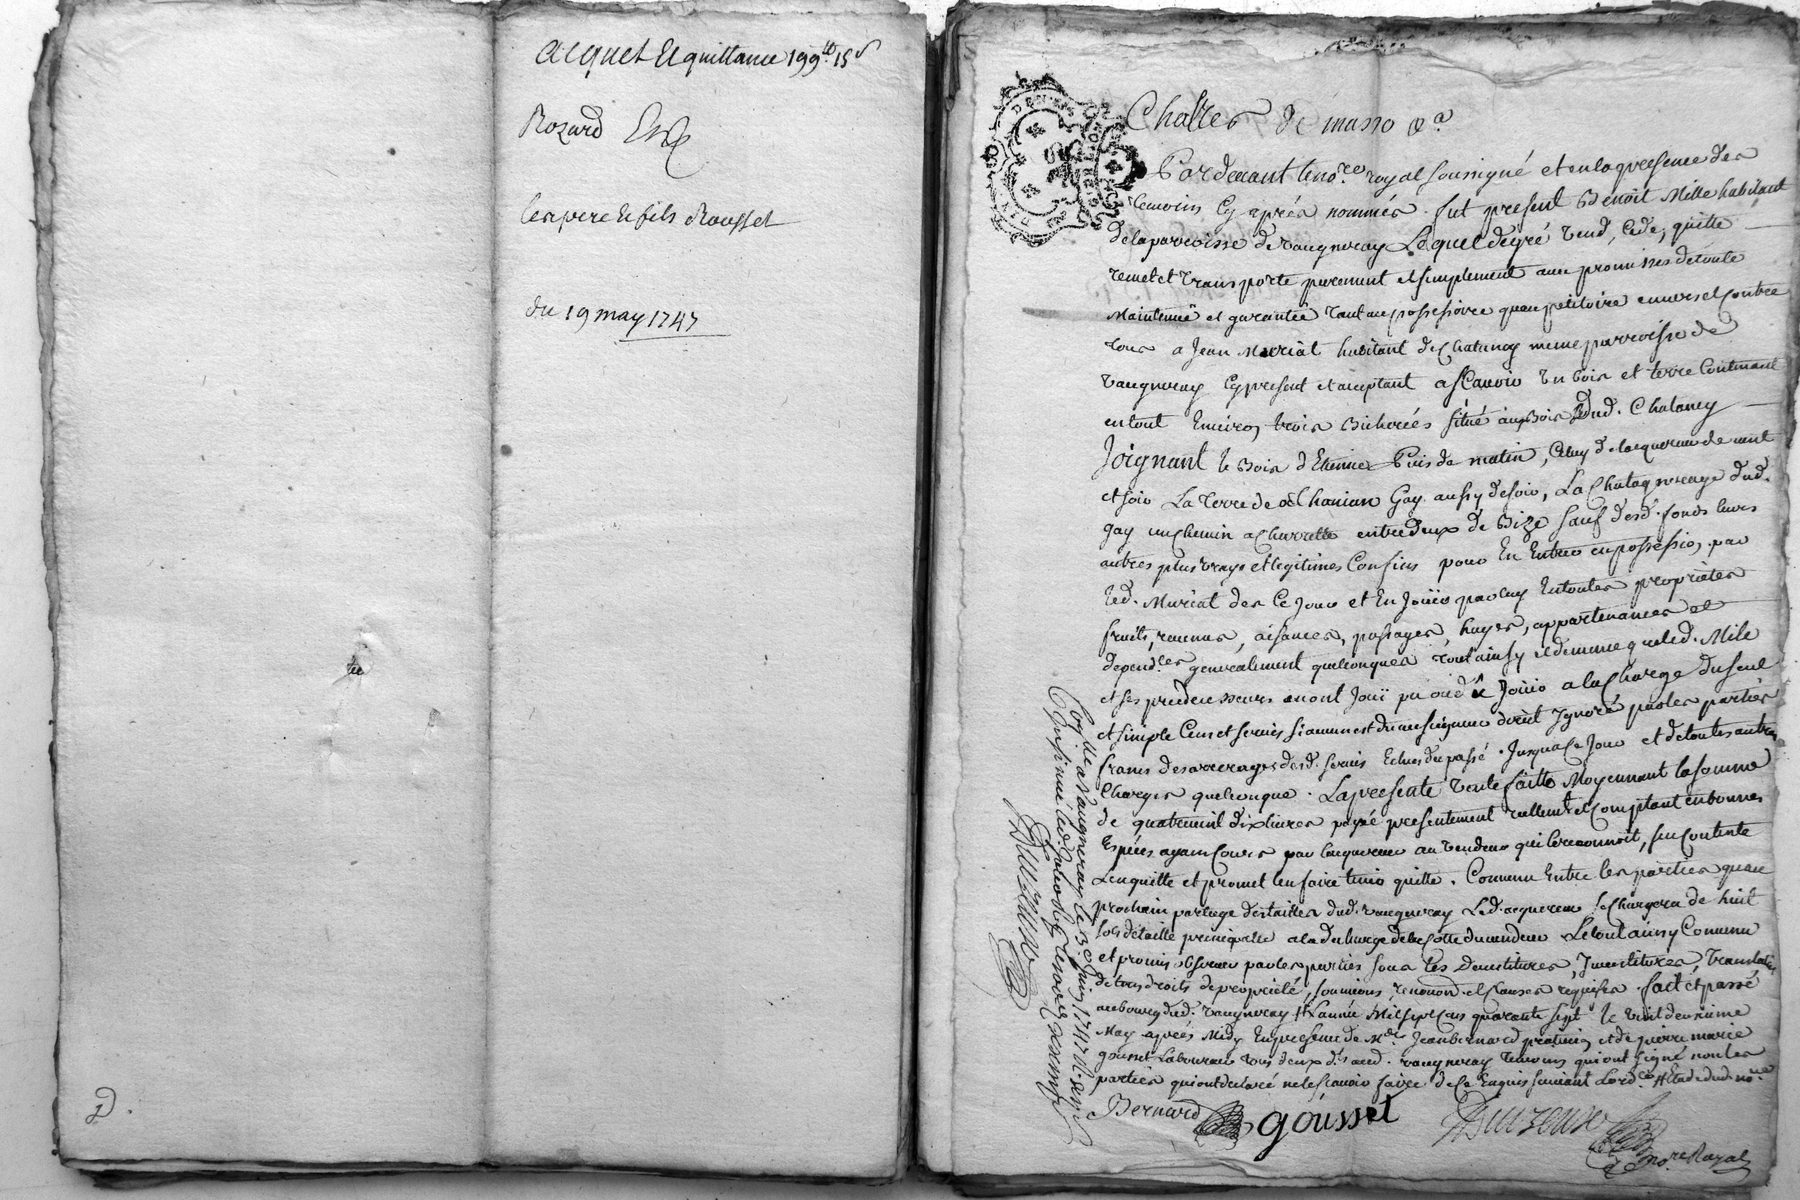 acquet et quittance 199ᵗᵗ 15ˢ
Rozard
les pere et fils Rousset
du 19 may 1747
Charles de masso
Pardevant le noʳᵉ royal soussigné et en la presence des
temoins cy aprés nommés fut present Benoit Mille habitant
de la parroisse de vaugneray Lequel de gré vend, cede, quitte
remet et transporte purement et simplement avec promesses de toute
Maintenüe et garantie tant au possessoire qu'au petitoire envers et contre
tous a Jean Muriat habitant de Chatanay meme parroisse de
vaugneray cy present et acceptant asçavoir un bois et terre Contenant
en tout Environ trois Bicherées situé au Bois dud. Chatanay
Joignant le Bois d'Etienne Puis de matin, Celuy de l'acquereur de vent
et soir La terre de Chanian Gay aussy de soir, La Chataigneraye dud.
gay un chemin a charrette entredeux de Bize sauf desd. fonds leurs
autres plus vrays et legitimes Confins pour En Entrer en possession par
led. Muriat des Ce Jour et En Joüir par luy En toutes proprietés
fruits, revenus, aisances, passages, hayes, appartenances et
dependᶜᵉˢ generalement quelconques tout ainsy et de meme que led. Mille
et ses predecesseurs en ont Joüi pu ou dû Joüir a la Charge du seul
et simple Cens et servis si aucun est du au seigneur direct Ignoré par les parties
francs des arrerages desd. servis Echus du passé Jusqu'a Ce Jour et de toutes autres
Charges quelconque. La presente vente faitte Moyennant la somme
de quatrevint dix livres payé presentement reellement et Comptant en bonnes
Espéces ayant Cours par l'acquereur au vendeur qui le reconnoit, s'en Contente
L'en quitte et promet l'en faire tenir quitte. Convenu Entre les parties qu'au
prochain partage des tailles dud. vaugneray Led. acquereur se chargera de huit
sols de taille principalle a la decharge de la Cotte du vendeur Le tout ainsy Convenu
et promis observer par les parties sous les Devestitures, Investitures, translation
de tous droits de proprieté, soumions, renonon et clauses requises fait et passé
au bourg dud. vaugneray L'année Mil sept Cens quarante sept le vint deuxieme
May aprés Midy En presence de Mʳᵉ Jean bernard praticien et de pierre marie
gousset Laboureur tous deux dud. vaugneray temoins qui ont signé non les
parties qui ont declaré ne le sçavoir faire de Ce Enquis suivant Lordᶜᵉ
Bernard
gousset
noʳᵉ Royal
Conˡˡᵉ a vaugneray le 30 Juin 1747